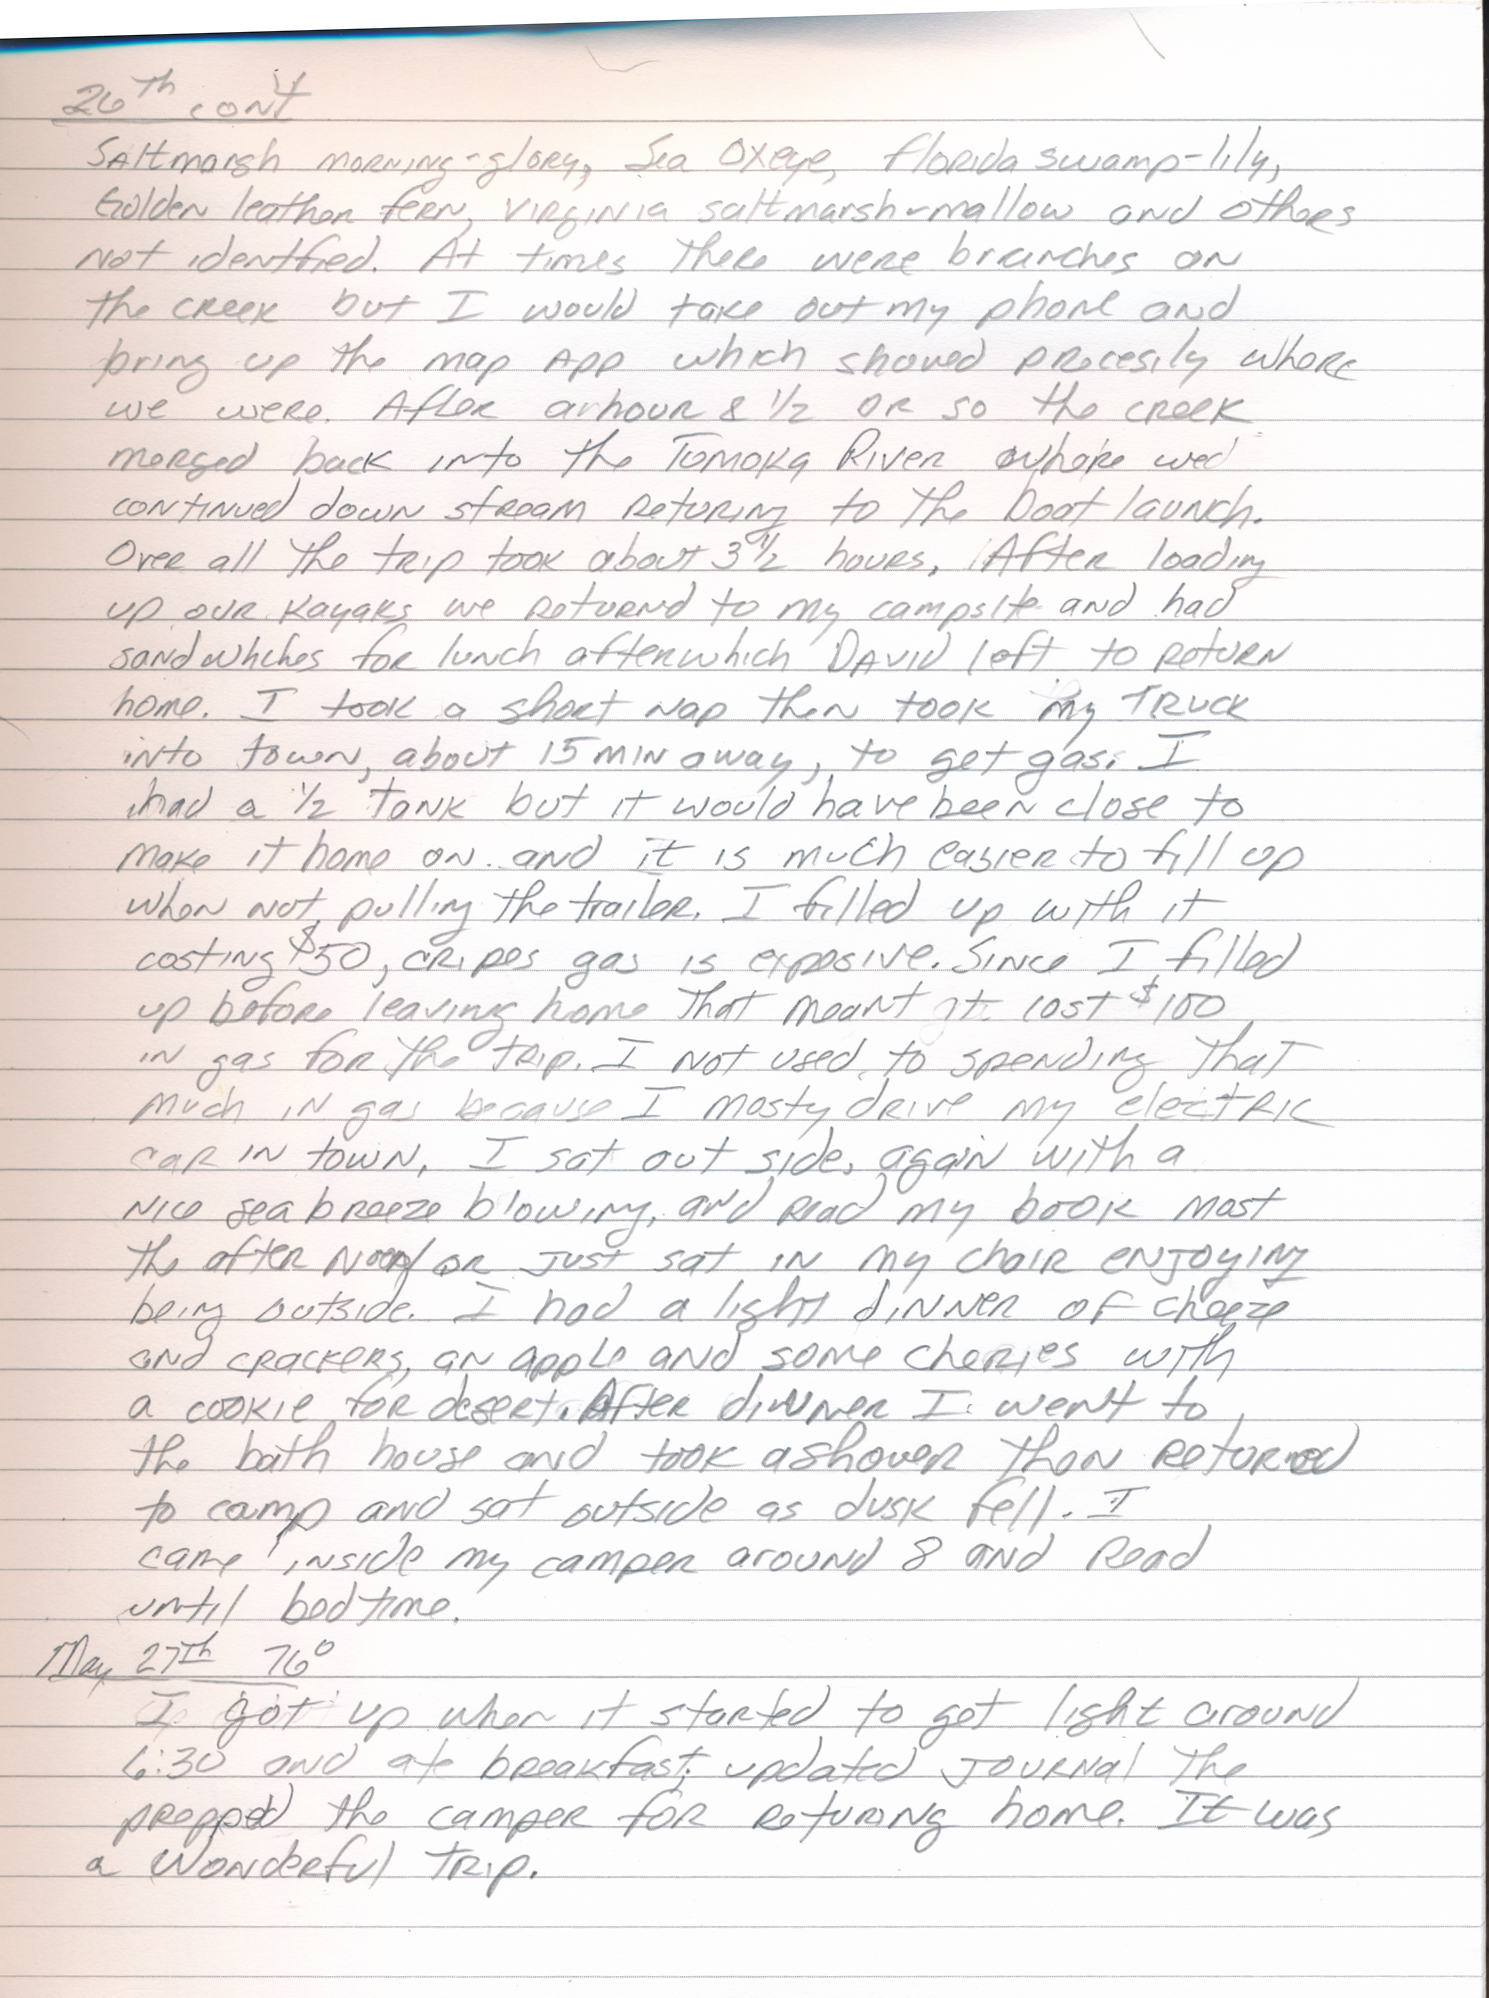 26th cont
Saltmarsh morning-glory, Sea Oxeye, Florida swamp-lily,
Golden leather fern, Virginia saltmarsh-mallow and others
not identfied. At times there were branches on
the creek but I would take out my phone and
bring up the map app which showed precesily where
we were. After an hour & 1/2 or so the creek
merged back into the Tomoka River where wed
continued down stream returing to the boat launch.
Over all the trip took about 3 1/2 hours. After loading
up our kayaks we returnd to my campsite and had
sandwhches for lunch afterwhich David left to return
home. I took a short nap then took my truck
into town, about 15 min away, to get gas. I
had a 1/2 tank but it would have been close to
make it home on and it is much easier to fill up
when not pulling the trailer. I filled up with it
costing $50, cripes gas is exposive. Since I filled
up before leaving home that meant it cost $100
in gas for the trip. I not used to spending that
much in gas because I mosty drive my electric
car in town. I sat out side, again with a
nice sea breeze blowing, and read my book most
the after noon or just sat in my chair enjoying
being outside. I had a light dinner of cheeze
and crackers, an apple and some cherries with
a cookie for desert. After dinner I went to
the bath house and took a shower then returned
to camp and sat outside as dusk fell. I
came inside my camper around 8 and read
until bedtime.
May 27th 76°
I got up when it started to get light around
6:30 and ate breakfast, updated journal the
prepped the camper for returing home. It was
a wonderful trip.